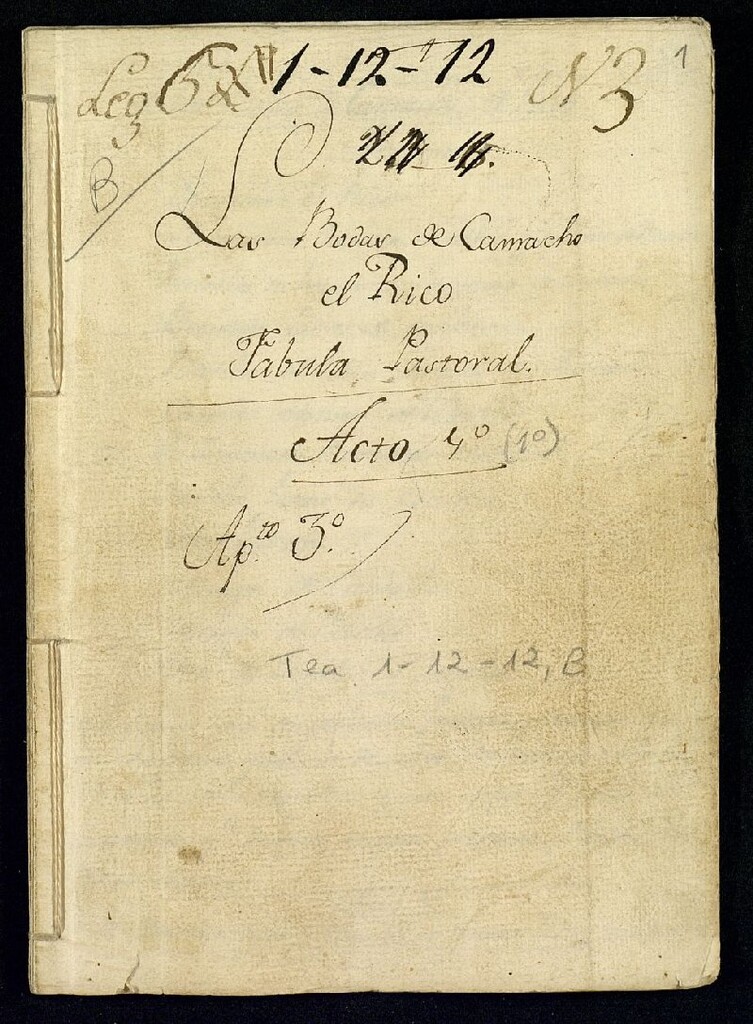 Leg 1-12-12 N 3 1
B
Las Bodas de Camacho
el Rico
Fabula Pastoral.
Acto 4º (1º)
Apto 3º.
Tea 1-12-12, B